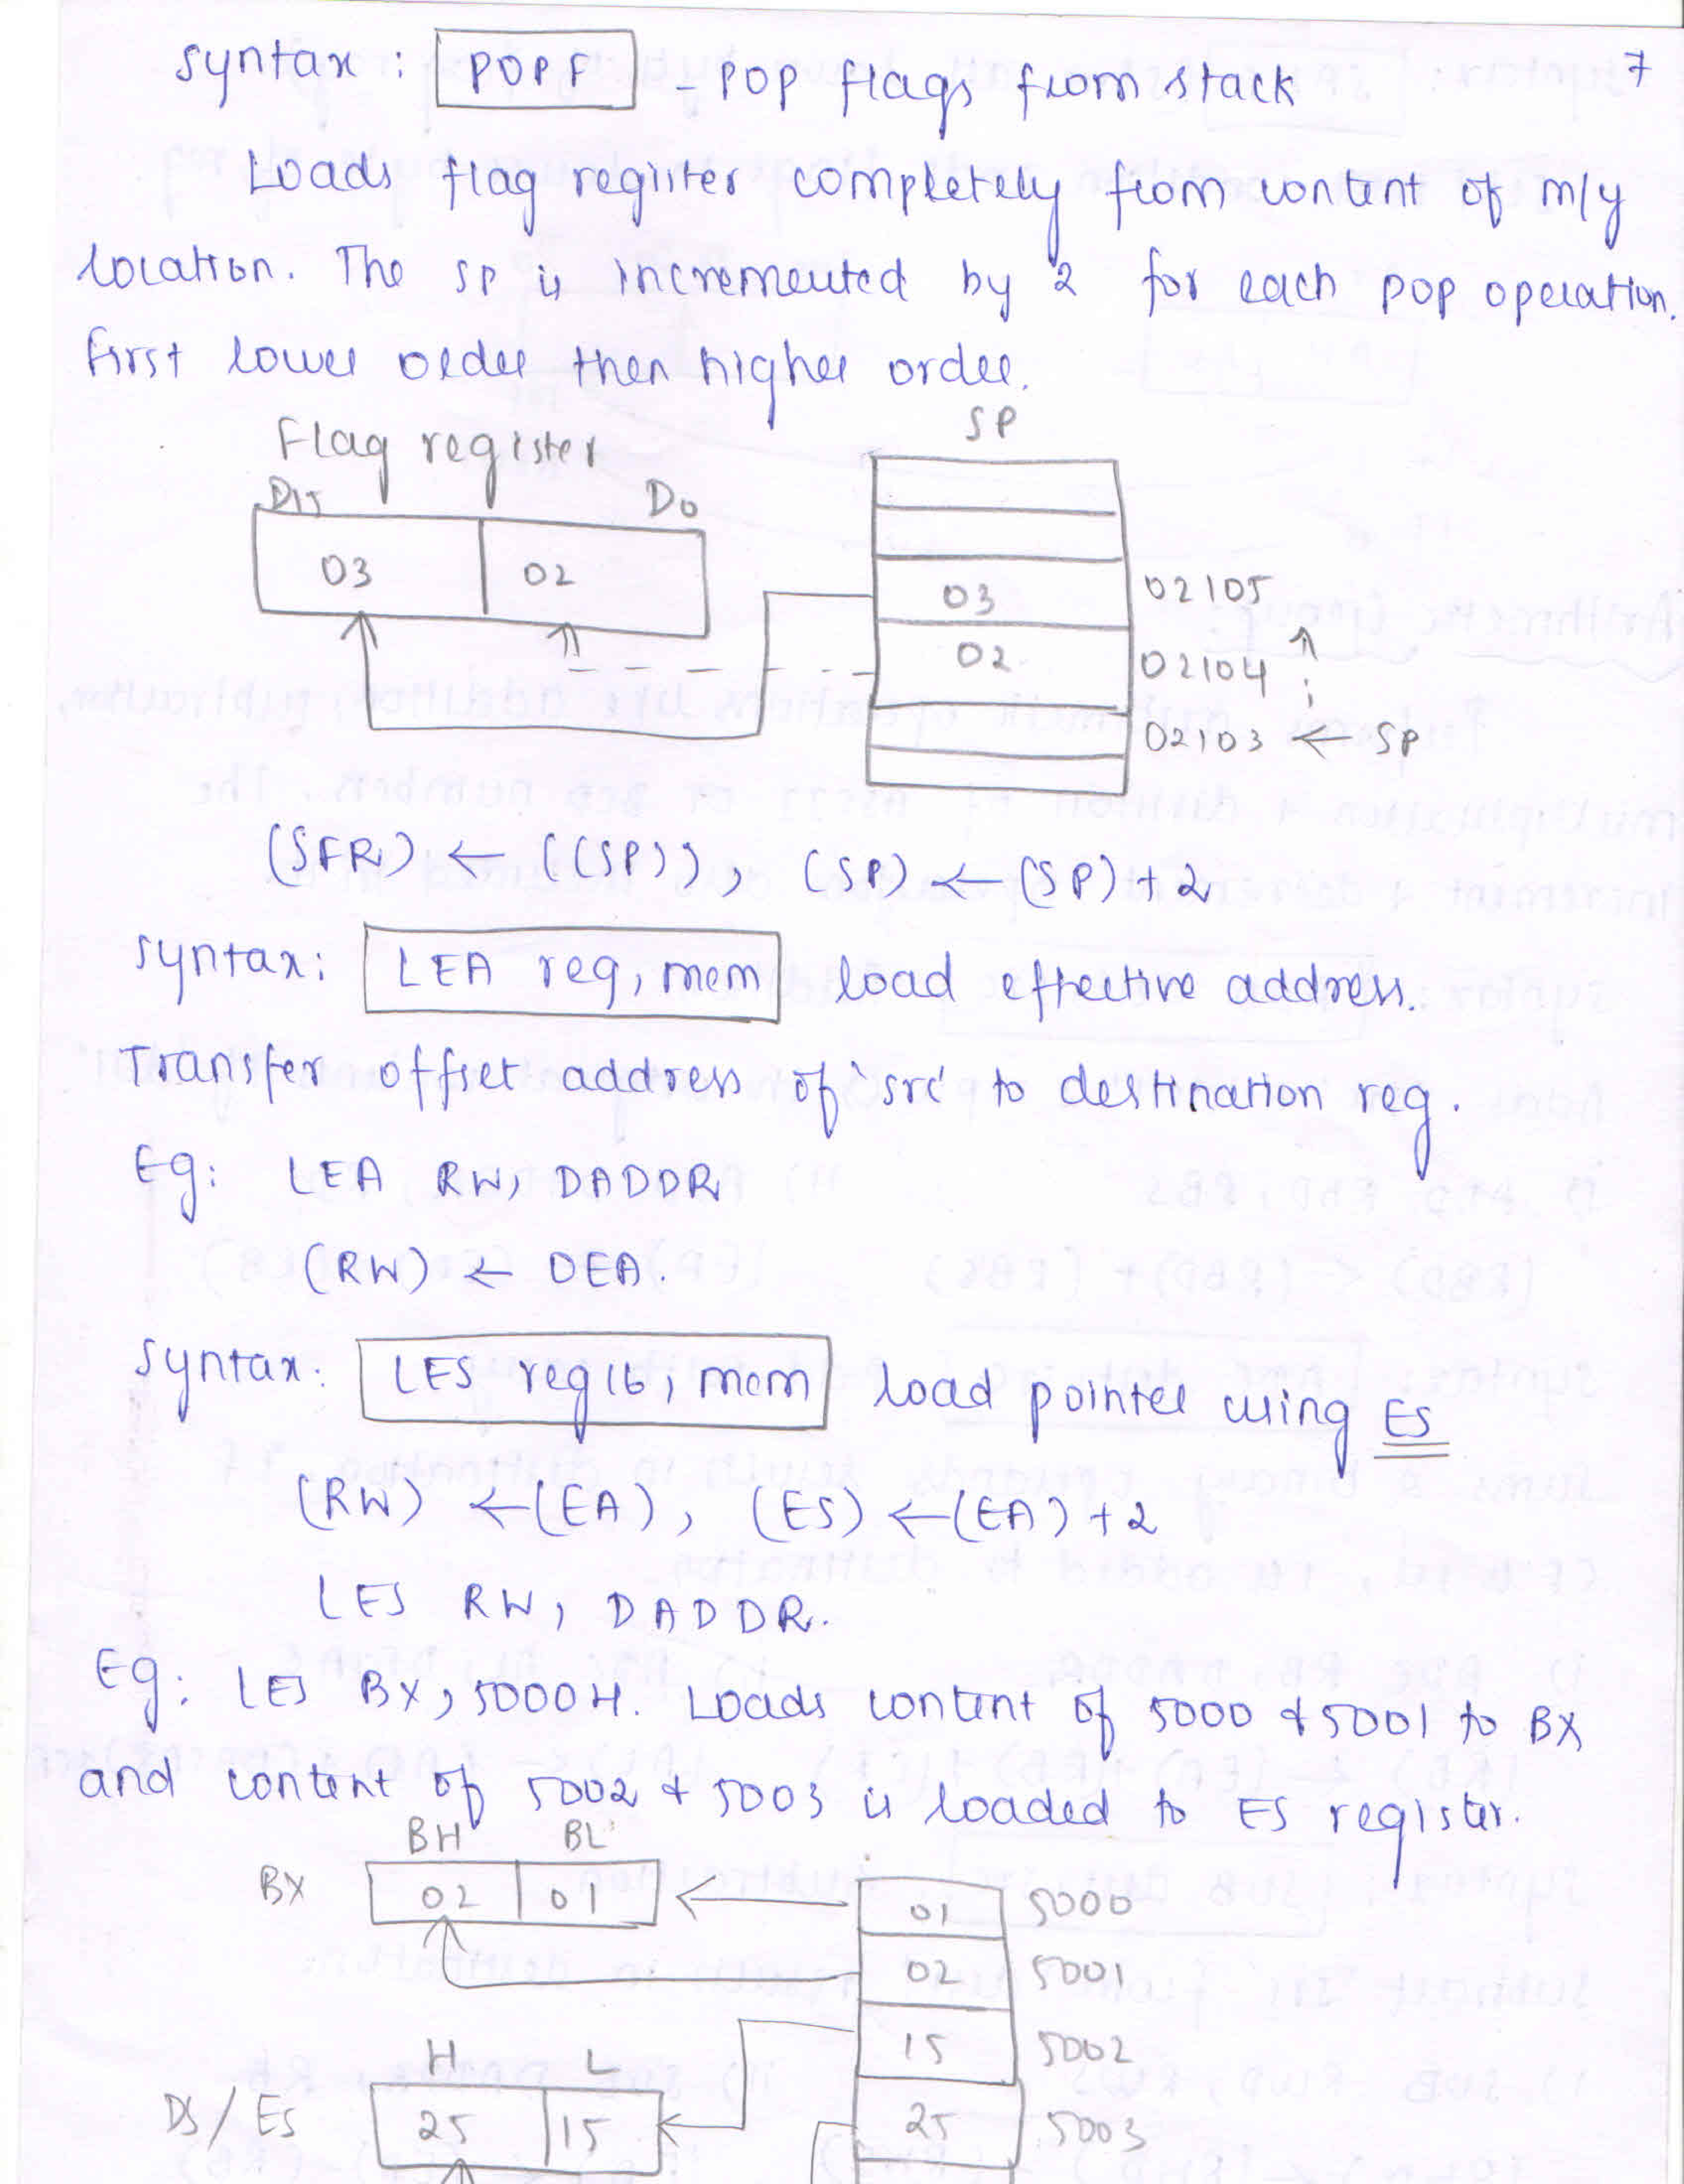 7
syntax: POPF - POP flags from stack
Loads flag register completely from content of m/y
location. The SP is incremented by 2 for each pop operation.
First lower order then higher order.
Flag register
SP
D15 D0
03 02
03 02105
02 02104
02103 ← SP
(SFR) ← ((SP)), (SP) ← (SP)+2
syntax: LEA reg, mem load effective address.
Transfer offset address of 'src' to destination reg.
Eg: LEA RW, DADDR
(RW) ← DEA.
syntax: LES reg16, mem load pointer using ES
(RW) ← (EA), (ES) ← (EA)+2
LES RW, DADDR.
Eg: LES BX, 5000H. Loads content of 5000 & 5001 to BX
and content of 5002 & 5003 is loaded to ES register.
BH BL
BX 02 01
01 5000
02 5001
15 5002
H L
DS/ES 25 15
25 5003